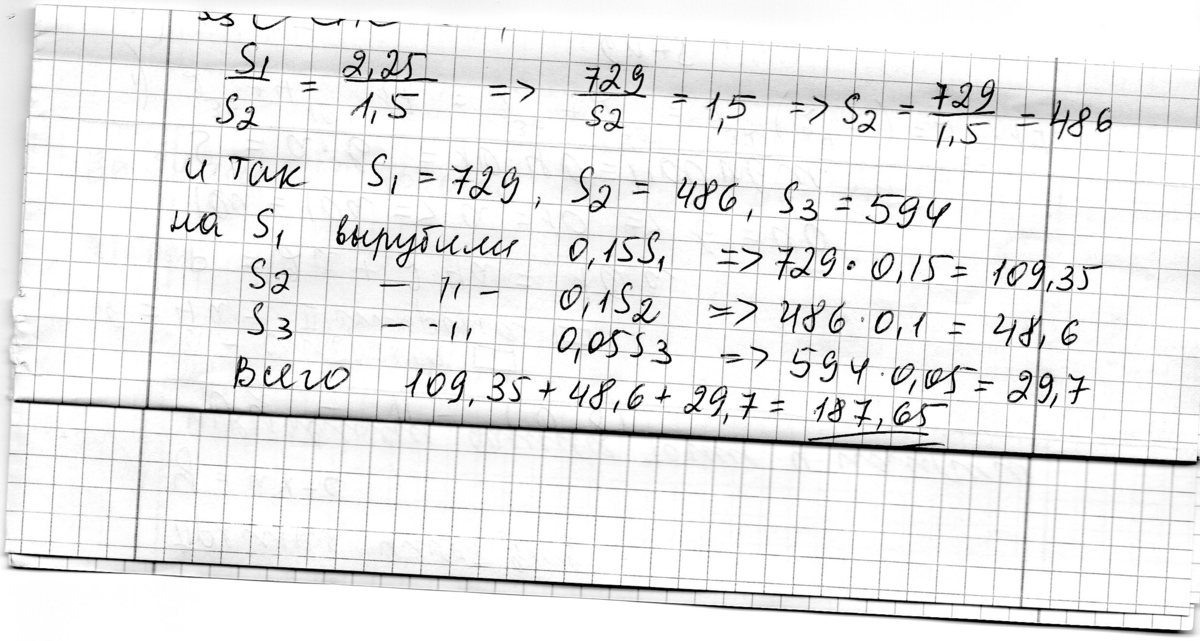 S1/S2 = 2,25/1,5 => 729/S2 = 1,5 => S2 = 729/1,5 = 486
и так S1 = 729, S2 = 486, S3 = 594
на S1 вырубили 0,15S1 => 729·0,15 = 109,35
S2 — " — 0,1S2 => 486·0,1 = 48,6
S3 — - " 0,05S3 => 594·0,05 = 29,7
Всего 109,35 + 48,6 + 29,7 = 187,65